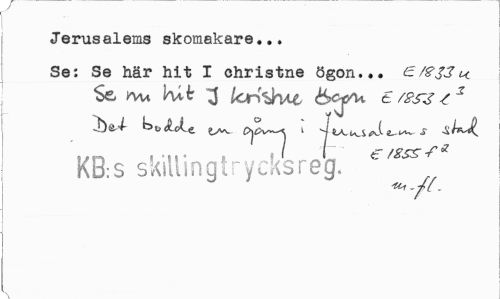 Jerusalems skomakare...
Se: Se här hit I christne ögon... E 1833 u
Se nu hit I kristne ögon E 1853 l 3
Det bodde en gång i Jerusalems stad
E 1855 f 2
KB:s skillingtrycksreg.
m.fl.